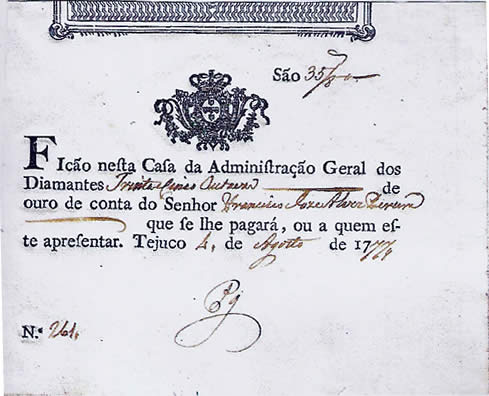 São 35
FIcão neſta Caſa da Adminiſtração Geral dos
Diamantes Trinta Cinco de
ouro de conta do Senhor Francisco Joze Alvez Pereira
que ſe lhe pagará, ou a quem eſ-
te apreſentar. Tejuco 4, de Agosto de 17
N.º